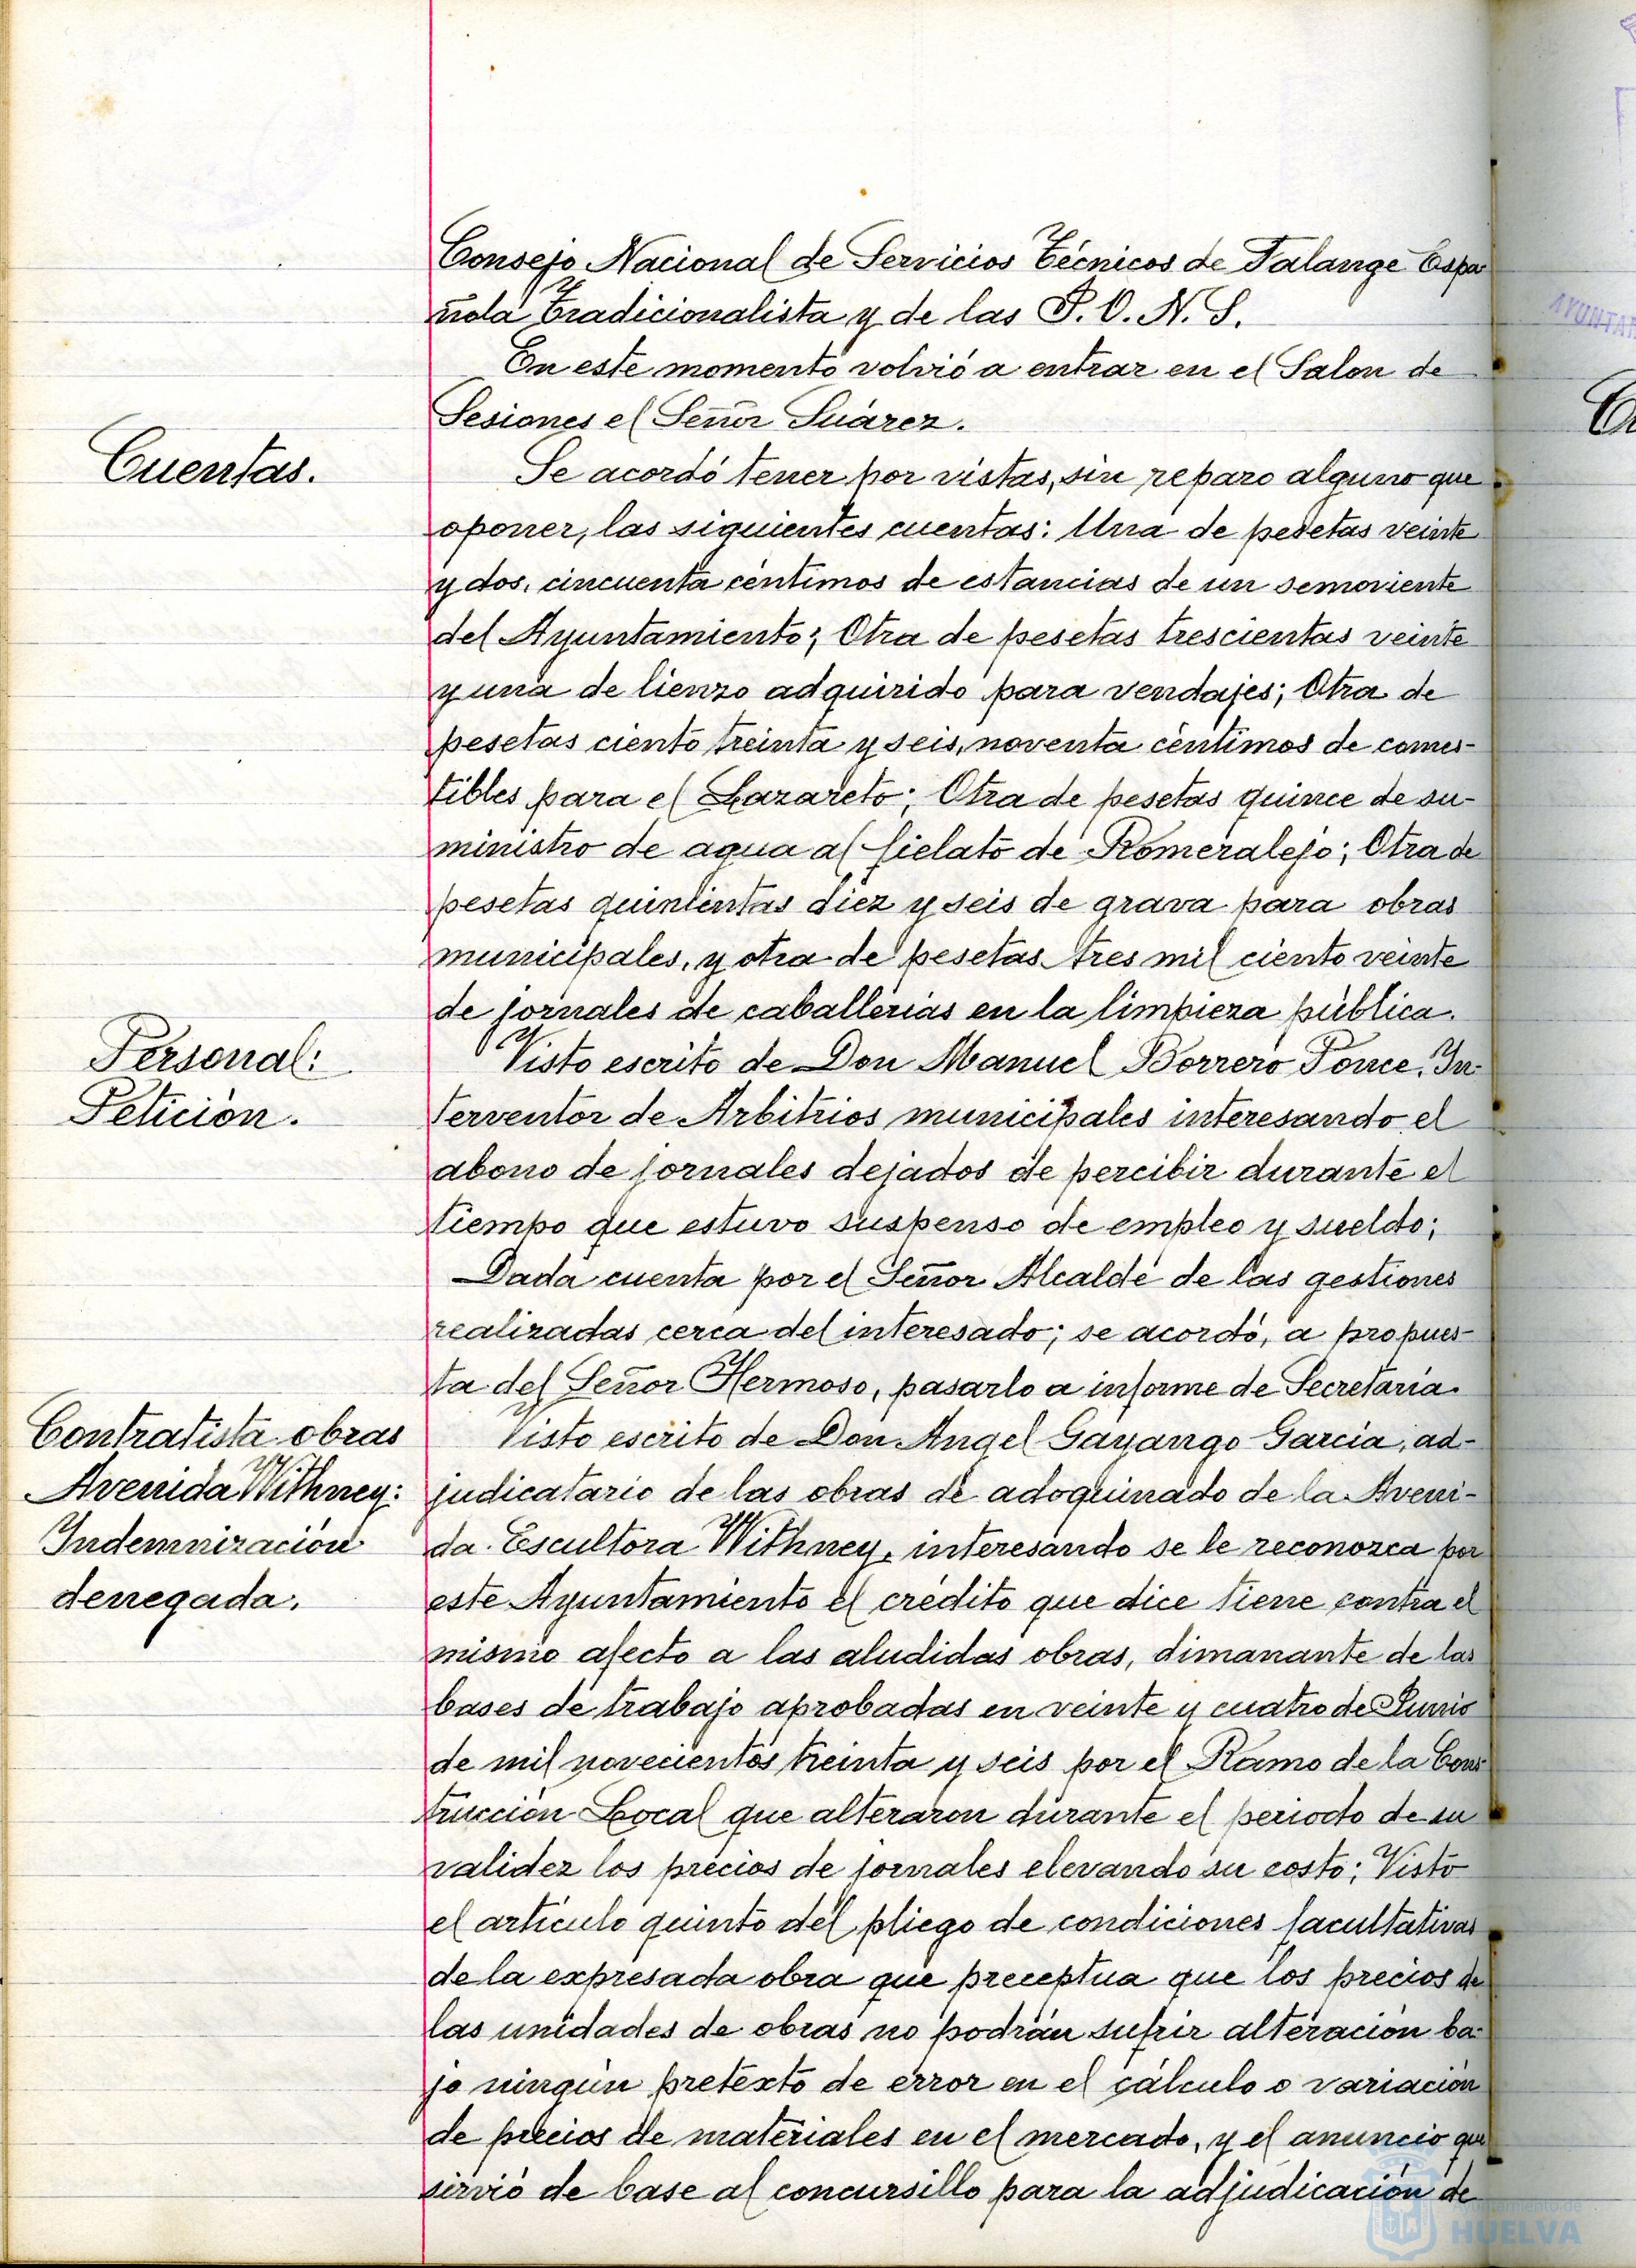 Consejo Nacional de Servicios Técnicos de Falange Espa
ñola Tradicionalista y de las J. O. N. S.
En este momento volvió a entrar en el Salon de
Sesiones el Señor Suárez.
Cuentas.
Se acordó tener por vistas, sin reparo alguno que
oponer, las siguientes cuentas: Una de pesetas veinte
y dos, cincuenta céntimos de estancias de un semoviente
del Ayuntamiento; Otra de pesetas trescientas veinte
y una de lienzo adquirido para vendajes; Otra de
pesetas ciento treinta y seis, noventa céntimos de comes-
tibles para el Lazareto; Otra de pesetas quince de su-
ministro de agua al fielato de Romeralejo; Otra de
pesetas quinientas diez y seis de grava para obras
municipales, y otra de pesetas tres mil ciento veinte
de jornales de caballerias en la limpieza pública.
Personal:
Petición.
Visto escrito de Don Manuel Borrero Ponce, In-
terventor de Arbitrios municipales interesando el
abono de jornales dejados de percibir durante el
tiempo que estuvo suspenso de empleo y sueldo;
Dada cuenta por el Señor Alcalde de las gestiones
realizadas cerca del interesado; se acordó, a propues-
ta del Señor Hermoso, pasarlo a informe de Secretaria.
Contratista obras
Avenida Withney:
Indemnización
denegada.
Visto escrito de Don Angel Gayango Garcia, ad-
judicatario de las obras de adoquinado de la Aveni-
da Escultora Withney, interesando se le reconozca por
este Ayuntamiento el crédito que dice tiene contra el
mismo afecto a las aludidas obras, dimanante de las
bases de trabajo aprobadas en veinte y cuatro de Junio
de mil novecientos treinta y seis por el Ramo de la Cons-
trucción Local que alteraron durante el periodo de su
validez los precios de jornales elevando su costo; Visto
el articulo quinto del pliego de condiciones facultativas
de la expresada obra que preceptua que los precios de
las unidades de obras no podrán sufrir alteración ba-
jo ningún pretexto de error en el cálculo o variación
de precios de materiales en el mercado, y el anuncio que
sirvió de base al concursillo para la adjudicación de
HUELVA